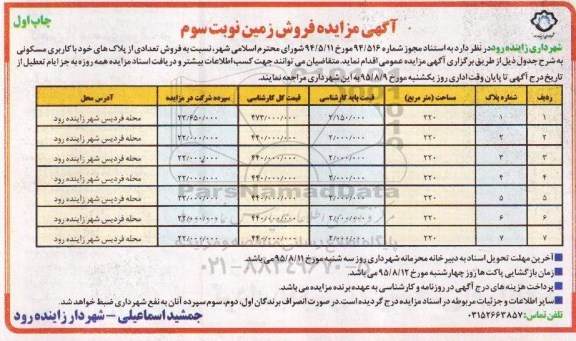 چاپ اول
آگهی مزایده فروش زمین نوبت سوم
شهرداری زاینده رود در نظر دارد به استناد مجوز شماره ۹۴/۵۱۶ مورخ ۹۴/۵/۱۱ شورای محترم اسلامی شهر، نسبت به فروش تعدادی از پلاک های خود با کاربری مسکونی
به شرح جدول ذیل از طریق برگزاری آگهی مزایده عمومی اقدام نماید. متقاضیان می توانند جهت کسب اطلاعات بیشتر و دریافت اسناد مزایده همه روزه به جز ایام تعطیل از
تاریخ درج آگهی تا پایان وقت اداری روز یکشنبه مورخ ۹۵/۸/۹ به این شهرداری مراجعه نمایند.
ردیف شماره پلاک مساحت (متر مربع) قیمت پایه کارشناسی قیمت کل کارشناسی سپرده شرکت در مزایده آدرس محل
۱ ۱ ۲۲۰ ۲/۱۵۰/۰۰۰ ۴۷۳/۰۰۰/۰۰۰ ۲۳/۶۵۰/۰۰۰ محله فردیس شهر زاینده رود
۲ ۲ ۲۲۰ ۲/۰۰۰/۰۰۰ ۴۴۰/۰۰۰/۰۰۰ ۲۲/۰۰۰/۰۰۰ محله فردیس شهر زاینده رود
۳ ۳ ۲۲۰ ۲/۰۰۰/۰۰۰ ۴۴۰/۰۰۰/۰۰۰ ۲۲/۰۰۰/۰۰۰ محله فردیس شهر زاینده رود
۴ ۴ ۲۲۰ ۲/۰۰۰/۰۰۰ ۴۴۰/۰۰۰/۰۰۰ ۲۲/۰۰۰/۰۰۰ محله فردیس شهر زاینده رود
۵ ۵ ۲۲۰ ۲/۰۰۰/۰۰۰ ۴۴۰/۰۰۰/۰۰۰ ۲۲/۰۰۰/۰۰۰ محله فردیس شهر زاینده رود
۶ ۶ ۲۲۰ ۲/۰۰۰/۰۰۰ ۴۴۰/۰۰۰/۰۰۰ ۲۲/۰۰۰/۰۰۰ محله فردیس شهر زاینده رود
۷ ۷ ۲۲۰ ۲/۰۰۰/۰۰۰ ۴۴۰/۰۰۰/۰۰۰ ۲۲/۰۰۰/۰۰۰ محله فردیس شهر زاینده رود
ParsNamadData
۰۲۱-۸۸۳۴۹۶۷۰
آخرین مهلت تحویل اسناد به دبیرخانه محرمانه شهرداری روز سه شنبه مورخ ۹۵/۸/۱۱ می باشد.
زمان بازگشایی پاکت ها روز چهارشنبه مورخ ۹۵/۸/۱۲ می باشد.
پرداخت هزینه های درج آگهی در روزنامه و کارشناسی به عهده برنده مزایده می باشد.
سایر اطلاعات و جزئیات مربوطه در اسناد مزایده درج گردیده است. در صورت انصراف برندگان اول، دوم، سوم سپرده آنان به نفع شهرداری ضبط خواهد شد.
تلفن تماس: ۰۳۱۵۲۶۶۳۸۵۷
جمشید اسماعیلی - شهردار زاینده رود